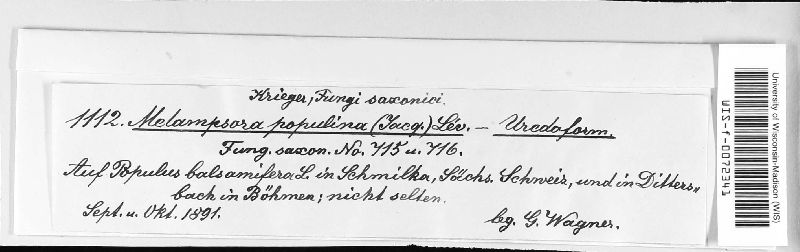 Krieger, Fungi saxonici.
1112. Melampsora populina (Jacq.) Lév. – Uredoform.
Fung. saxon. No. 715 u. 716.
Auf Populus balsamifera L. in Schmilka, Sächs. Schweiz, und in Ditters„
bach in Böhmen; nicht selten.
Sept. u. Okt. 1891.
leg. G. Wagner.
University of Wisconsin-Madison (WIS)
WIS-f-0072341